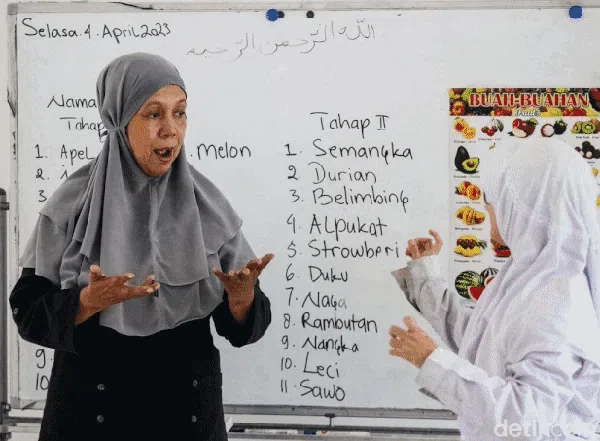 Selasa. 4. April 2023
الله الرحمن الرحيم
Nama
Tahap
1. Apel
. Melon
2.
3
9.
10
Tahap II
1. Semangka
2. Durian
3. Belimbing
4. Alpukat
5. Strowberi
6. Duku
7. Naga
8. Rambutan
9. Nangka
10. Leci
11. Sawo
BUAH-BUAHAN
detik